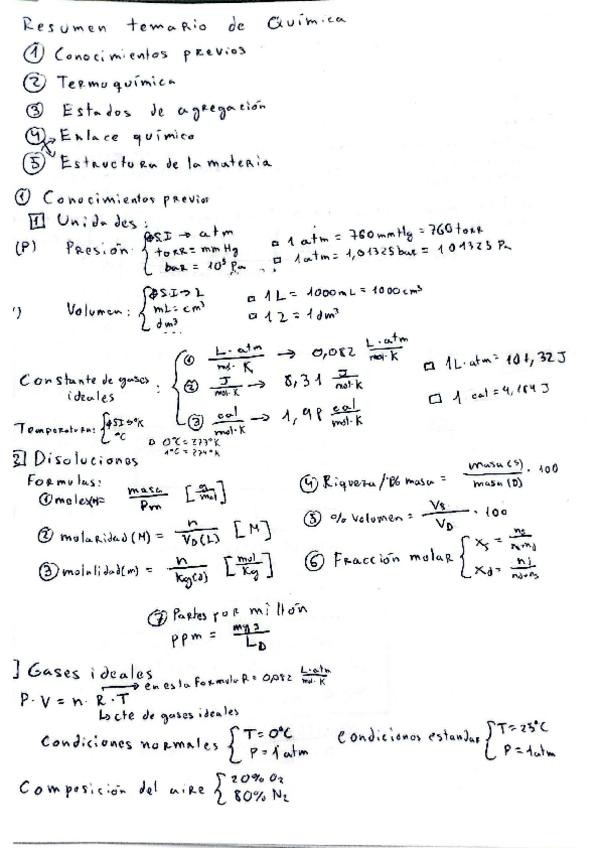 Resumen temario de Química
① Conocimientos previos
② Termoquímica
③ Estados de agregación
④ Enlace químico
⑤ Estructura de la materia
① Conocimientos previos
1 Unidades:
(P) Presión { SI → atm
torr = mmHg
bar = 10⁵ Pa
□ 1 atm = 760 mmHg = 760 torr
□ 1 atm = 1,01325 bar = 101325 Pa
Volumen: { SI → L
mL = cm³
dm³
□ 1L = 1000mL = 1000cm³
□ 1L = 1dm³
Constante de gases ideales : {
① L·atm / mol·K → 0,082 L·atm / mol·K
② J / mol·K → 8,31 J / mol·K
③ cal / mol·K → 1,98 cal / mol·K
□ 1L·atm = 101,32 J
□ 1 cal = 4,184 J
Temperatura: { SI → °K
°C
□ 0°C = 273°K
1°C = 274°K
2 Disoluciones
Formulas:
masa / Pm
② molaridad (M) = n / VD(L) [M]
③ molalidad (m) = n / Kg(d) [mol / Kg]
④ Riqueza / masa = masa(s) / masa(D) · 100
⑤ % Volumen = Vs / VD · 100
⑥ Fracción molar { Xs =
Xd =
⑦ Partes por millón
ppm = mg s / LD
] Gases ideales
en esta formula R = 0,082 L·atm / mol·K
P·V = n·R·T
↳ cte de gases ideales
Condiciones normales { T = 0°C
P = 1 atm
Condiciones estandar { T = 25°C
P = 1 atm
Composición del aire { 20% O₂
80% N₂